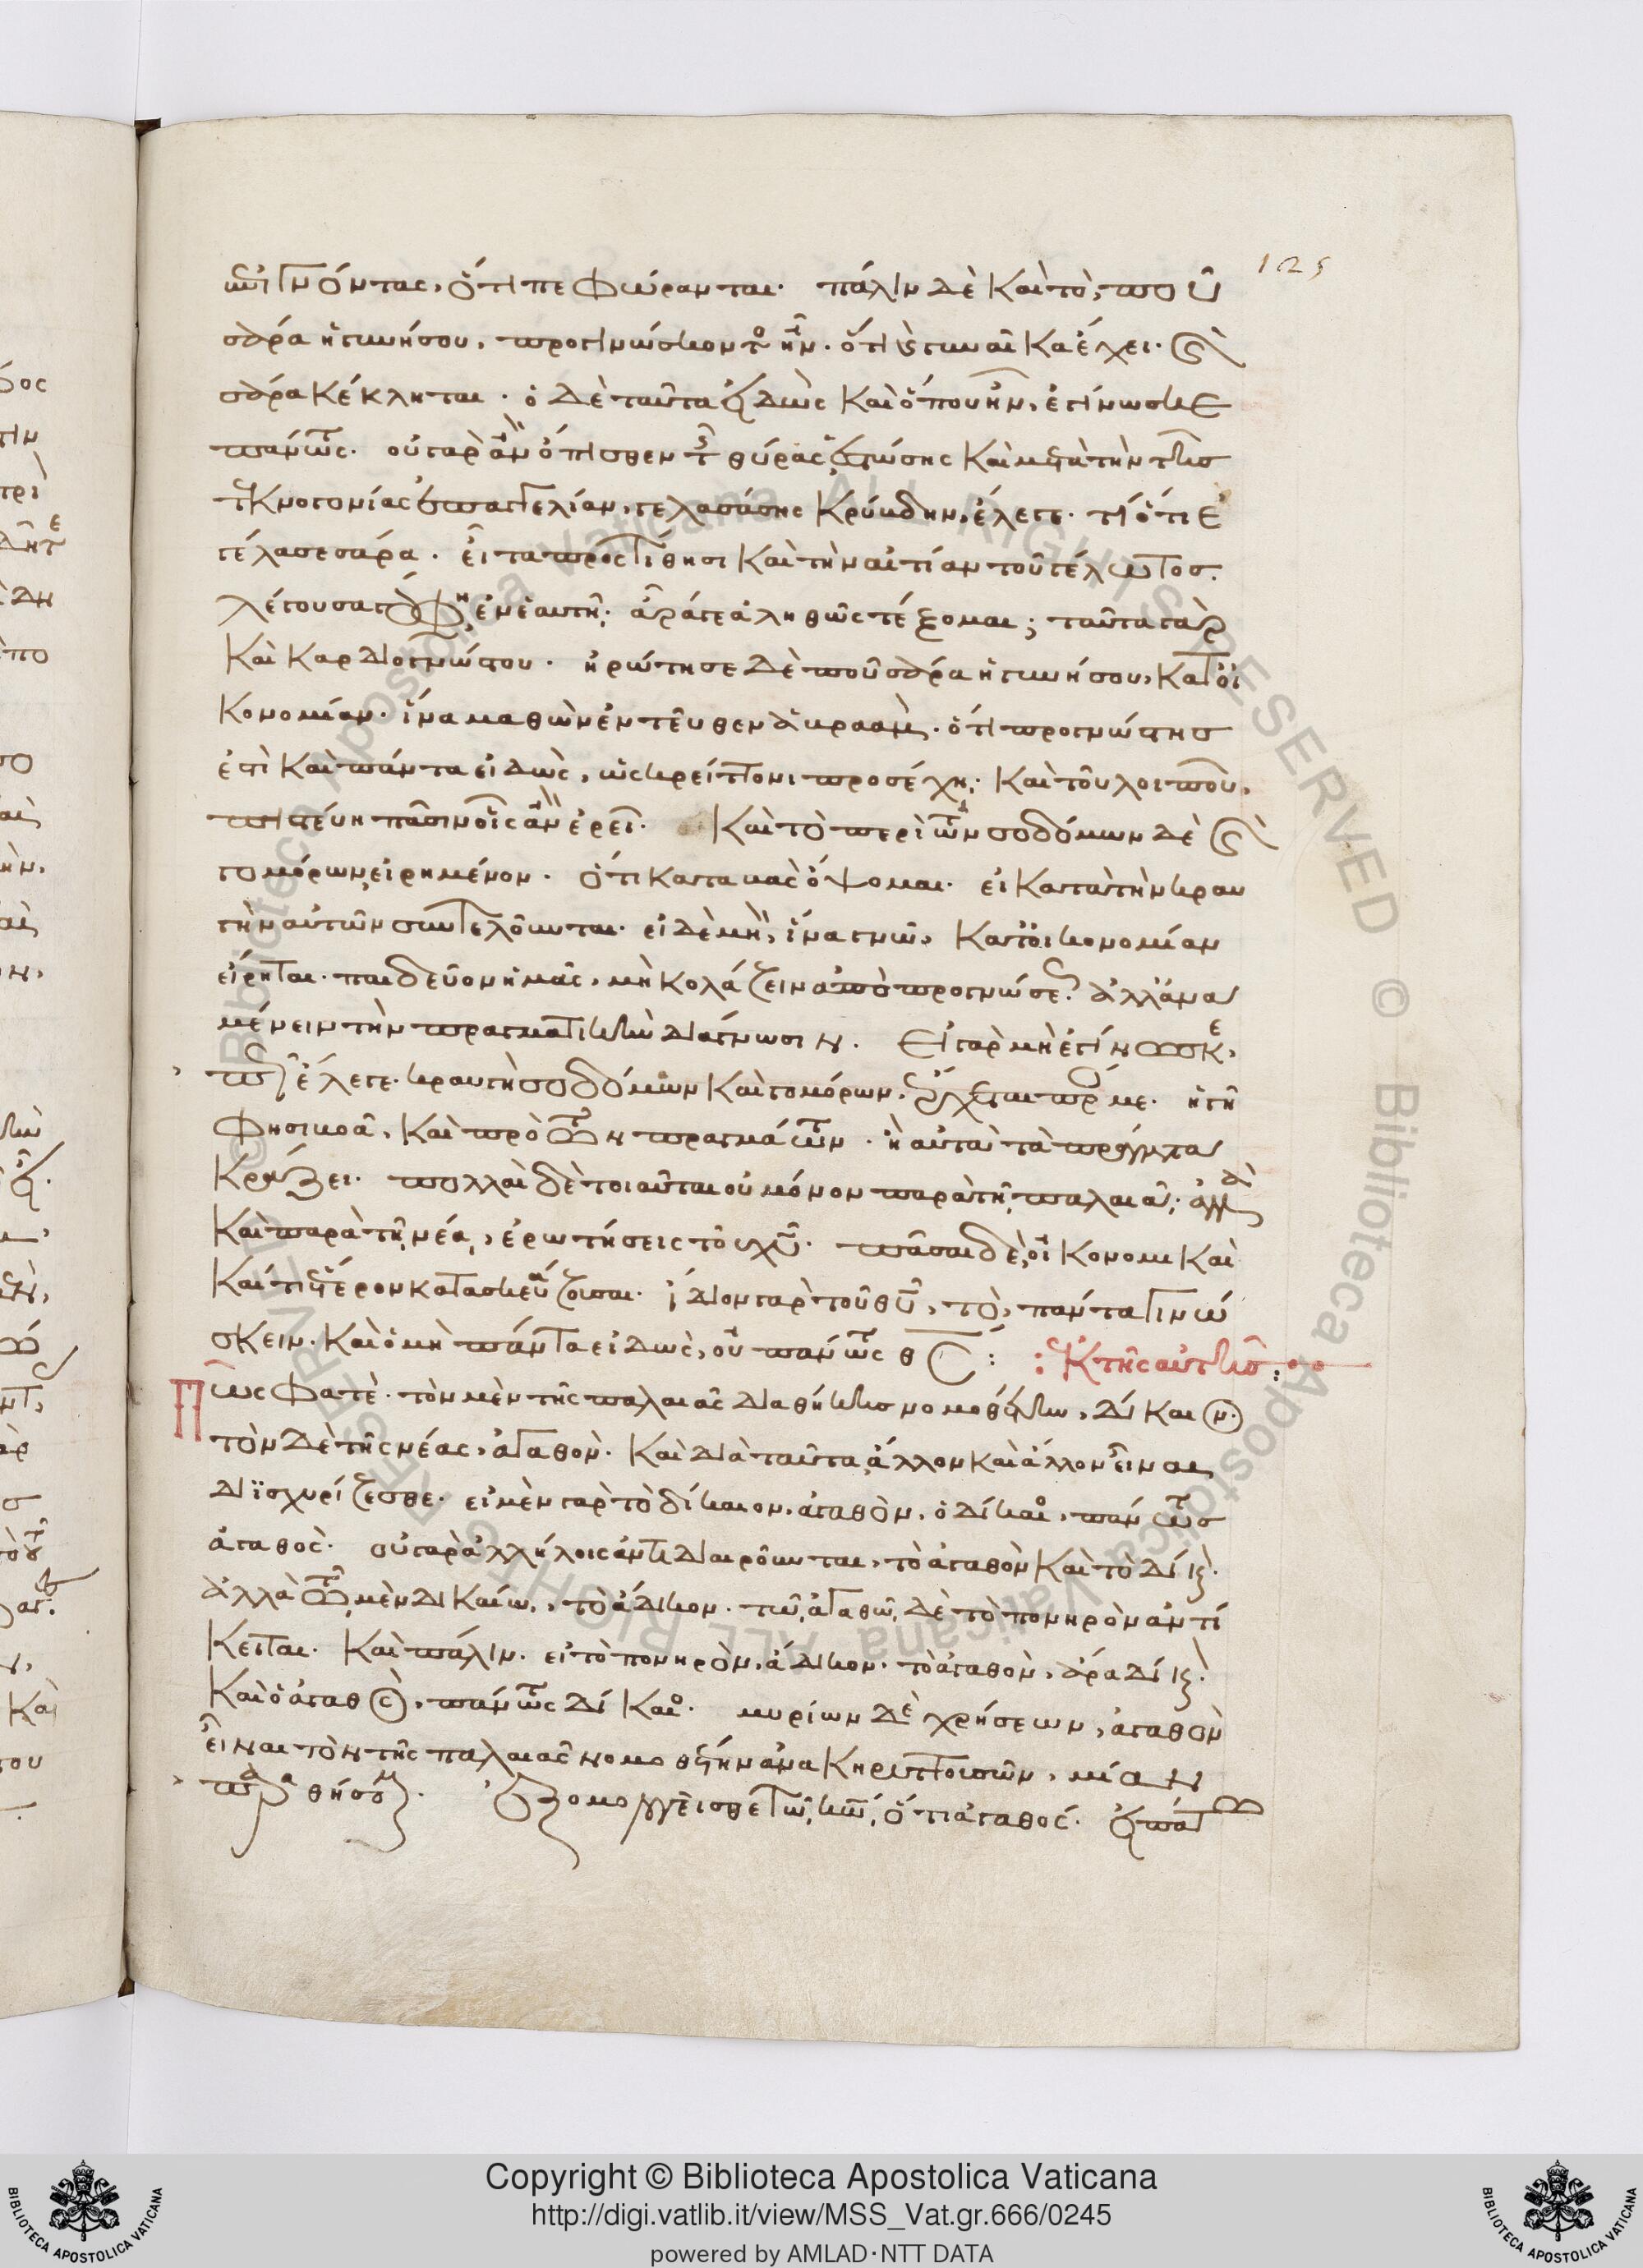 125
ἐπιγνόντας, ὅτι πεφώρανται. πάλιν δὲ καὶ τὸ, ποῦ
σάρρα ἡ γυνή σου, προγνώσκοντος ἦν. ὅτι γυναῖκα ἔχει. καὶ
σάρρα κέκληται. ὁ δὲ ταῦτα εἰδὼς καὶ ὅπου ἦν, ἐγίνωσκε
πάντως. οὐ γὰρ ἂν ὄπισθεν τῆς θύρας ἑστώσης καὶ μετὰ τὴν τῆς
τεκνογονίας ἐπαγγελίαν, γελασάσης κρύβδην, ἔλεγε. τί ὅτι ἐ
γέλασε σάρα. εἶτα προστίθησι καὶ τὴν αἰτίαν τοῦ γέλωτος.
λέγουσα γάρ φησιν ἐν ἑαυτῇ· ἆρά γε ἀληθῶς τέξομαι; ταῦτα γὰρ
καὶ καρδιογνώστου. ἠρώτησε δὲ ποῦ σάρρα ἡ γυνή σου, κατ οἰ
κονομίαν. ἵνα μαθὼν ἐντεῦθεν ἀβραὰμ. ὅτι προγνώστης
ἐστὶ καὶ πάντα εἰδὼς, ὡς κρείττονι προσέχῃ· καὶ τοῦ λοιποῦ,
πιστεύῃ πᾶσιν οἷς ἂν ἐρεῖ. καὶ τὸ περὶ τῶν σοδόμων δὲ καὶ
γομόρων εἰρημένον. ὅτι καταβὰς ὄψομαι. εἰ κατὰ τὴν κραυ
γὴν αὐτῶν συντελοῦνται. εἰ δὲ μὴ, ἵνα γνῶ, κατ οἰκονομίαν
εἴρηται. παιδεῦον ἡμᾶς, μὴ κολάζειν ἀπὸ προγνώσεως. ἀλλ ἀνα
μένειν τὴν πραγματικὴν διάγνωσιν. Εἰ γὰρ μὴ ἐγίνωσκε,
πῶς ἔλεγε. κραυγὴ σοδόμων καὶ γομόρων, ἔρχεται πρός με. ἢ γῆ
φησι βοᾶ, καὶ πρὸ τούτων πραγμάτων. ἢ αὐτὰ τὰ πράγματα
κράζει. πολλαὶ δὲ τοιαῦται οὐ μόνον παρὰ τῇ παλαιᾷ· ἀλλὰ
καὶ παρὰ τῇ νέᾳ, ἐρωτήσεις τοῦ χυ. πᾶσαι δὲ, οἰκονομικαὶ
καί τι ἕτερον κατασκευάζουσαι. ἴδιον γὰρ τοῦ θυ, τὸ, πάντα γινώ
σκειν. καὶ ὁ μὴ πάντα εἰδὼς, οὐ πάντως θς :
Ἐκ τῆς αὐτῆς :
Πῶς φατὲ. τὸν μὲν τῆς παλαιᾶς διαθήκης νομοθέτην, δίκαιον.
τὸν δὲ τῆς νέας, ἀγαθὸν. καὶ διὰ ταῦτα ἄλλον καὶ ἄλλον εἶναι
διϊσχυρίζεσθε. εἰ μὲν γὰρ τὸ δίκαιον, ἀγαθὸν, ὁ δίκαιος, πάντως
ἀγαθὸς. οὐ γὰρ ἀλλήλοις ἀντιδιαιροῦνται, τὸ ἀγαθὸν καὶ τὸ δίκαιον.
ἀλλὰ τῷ μὲν δικαίῳ, τὸ ἄδικον. τῷ ἀγαθῷ δὲ τὸ πονηρὸν ἀντί
κειται. καὶ πάλιν. εἰ τὸ πονηρὸν, ἄδικον. τὸ ἀγαθὸν, ἄρα δίκαιον.
καὶ ὁ ἀγαθὸς, πάντως δίκαιος. μυρίων δὲ χρήσεων, ἀγαθὸν
εἶναι τὸν τῆς παλαιᾶς νομοθέτην ἀνακηρυττουσῶν, μίαν
παραθήσομεν. ἐξομολογεῖσθε τῷ κω, ὅτι ἀγαθός.